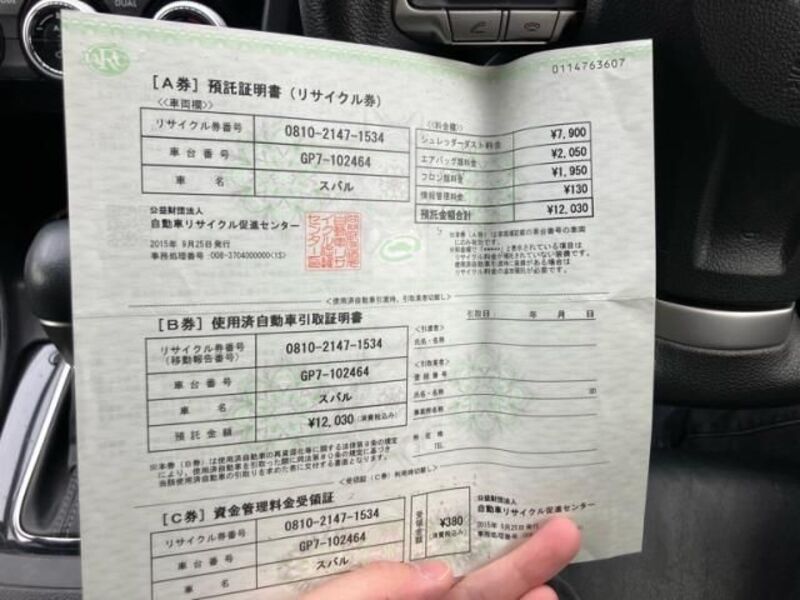 DUAL
0114763607
[A券] 預託証明書(リサイクル券)
<<車両欄>>
リサイクル券番号 0810-2147-1534
車台番号 GP7-102464
車名 スバル
<<料金欄>>
シュレッダーダスト料金 ¥7,900
エアバッグ類料金 ¥2,050
フロン類料金 ¥1,950
情報管理料金 ¥130
預託金額合計 ¥12,030
公益財団法人
自動車リサイクル促進センター
2015年 9月25日発行
事務処理番号:008-3704000000(1S)
<使用済自動車引渡時、引取業者切離し>
[B券] 使用済自動車引取証明書
引取日: 年 月 日
リサイクル券番号
(移動報告番号) 0810-2147-1534
車台番号 GP7-102464
車名 スバル
預託金額 ¥12,030 (消費税込み)
<引渡者>
氏名・名称
<引取業者>
登録番号
氏名・名称 印
事業所名称
所在地
TEL
※本券(B券)は使用済自動車の再資源化等に関する法律第9条の規定
により、使用済自動車を引取った際に同法第80条の規定に基づき
当該使用済自動車の引取りを求めた者に交付する書面となります。
<受領証(C券)利用時切離し>
[C券] 資金管理料金受領証
リサイクル券番号 0810-2147-1534
車台番号 GP7-102464
車名 スバル
受領金額 ¥380
(消費税込み)
公益財団法人
自動車リサイクル促進センター
2015年 9月25日発行
事務処理番号:008